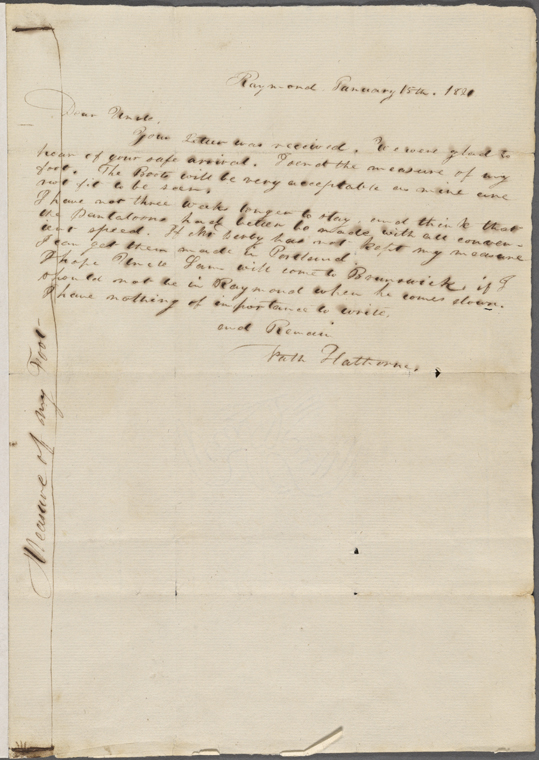 Raymond January 15th. 18
Dear Uncle,
Your Letter was received. We were glad to
hear of your safe arrival. I send the measure of my
foot. The Boots will be very acceptable as mine are
not fit to be seen.
I have not three weeks longer to stay and think that
the Pantaloons had better be made with all conven-
ient speed. If Mr has not kept my measure
I can get them made in Portland.
I hope Uncle Sam will come to Brunswick, if I
should not be in Raymond when he comes down.
I have nothing of importance to write.
and Remain
Nath Hathorne.
Measure of my Foot